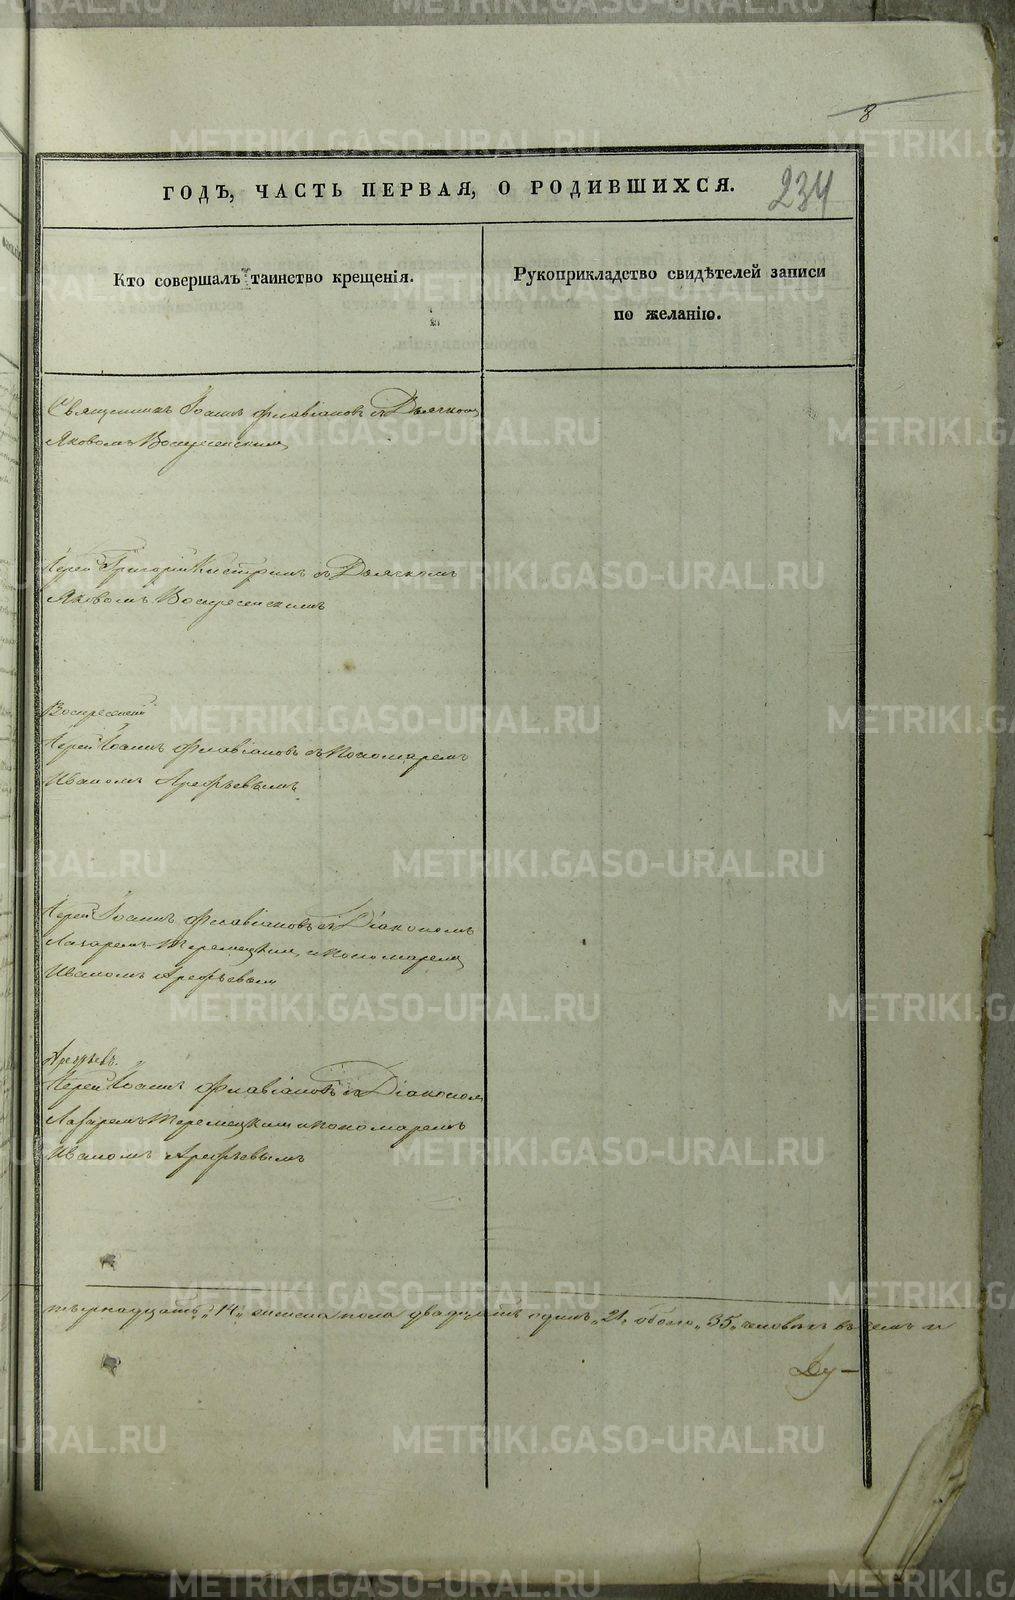 8
ГОДЪ, ЧАСТЬ ПЕРВАЯ, О РОДИВШИХСЯ.
234
Кто совершалъ таинство крещенія.
Рукоприкладство свидѣтелей записи
по желанію.
Священникъ Іоаннъ Флавіановъ съ Дьячкомъ
Яковомъ Воскресенскимъ
Іерей Григорій съ Дьячкомъ
Яковомъ Воскресенскимъ
Воскресенскій
Іерей Іоаннъ Флавіановъ съ Пономаремъ
Иваномъ Арефьевымъ
Іерей Іоаннъ Флавіановъ съ Діакономъ
Лазаремъ и Пономаремъ
Иваномъ Арефьевымъ
Арефьевъ.
Іерей Іоаннъ Флавіановъ съ Діакономъ
Лазаремъ и Пономаремъ
Иваномъ Арефьевымъ
тырнадцать „14„ женска пола двадцать одинъ „21„ обоего „35„ человѣкъ въ чемъ и
Ду-
METRIKI.GASO-URAL.RU